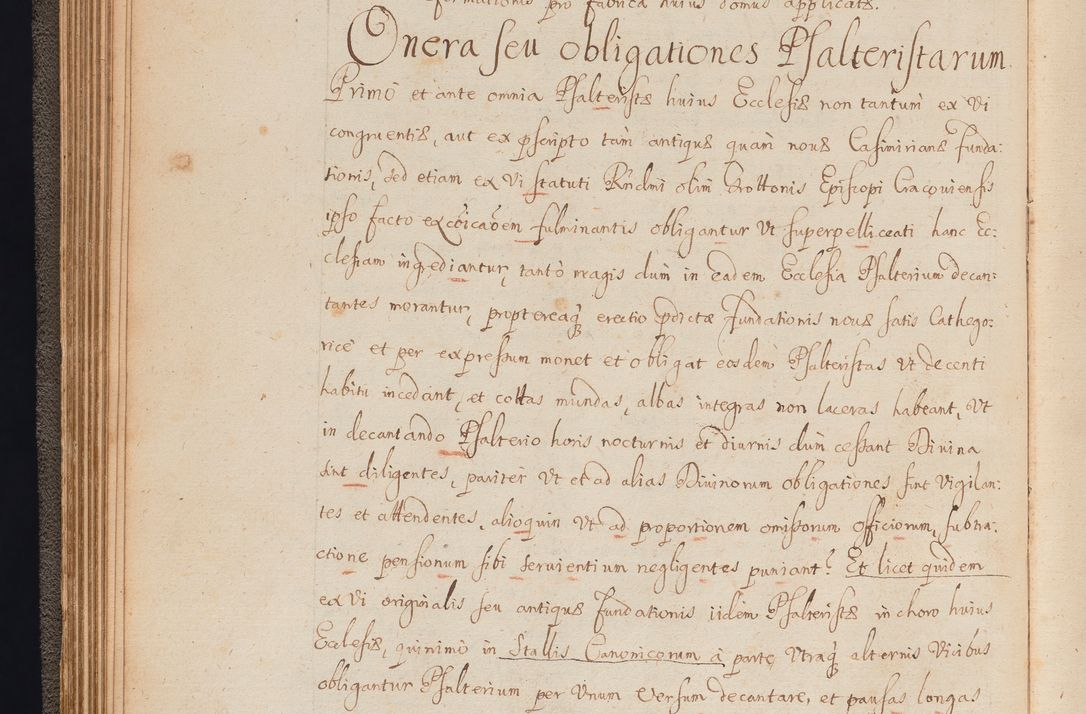 pro fabrica huius domus applicatæ.
Onera seu obligationes Psalteristarum.
Primò et ante omnia Psalteristæ huius Ecclesiæ non tantum ex vi
congruentiæ, aut ex pscripto tam antiquæ quàm nouæ Casimirianæ funda:
tionis, sed etiam ex vi statuti Rndmi olim Trottonis Episcopi Cracouiensis
ipso facto excōicaōem fulminantis obligantur vt superpelliceati hanc Ec:
clesiam ingrediantur, tantò magis dum in eadem Ecclesia Psalterium decan:
tantes morantur, proptereaq, erectio pdictæ fundationis nouæ satis Cathego:
ricè et per expressum monet et obligat eosdem Psalteristas vt decenti
habitu incedant, et cottas mundas, albas integras non laceras habeant, vt
in decantando Psalterio horis nocturnis et diurnis dum cessant Diuina
sint diligentes, pariter vt et ad alias Diuinorum obligationes sint vigilan:
tes et attendentes, alioquin vt ad proportionem omissorum officiorum, subtra:
ctione pensionum sibi seruientium negligentes puniant. Et licet quidem
ex vi originalis seu antiquæ fundationis iidem Psalteristæ in choro huius
Ecclesiæ, quinimò in Stallis Canonicorum à parte vtraq alternis vicibus
obligantur Psalterium per vnum versum decantare, et pausas longas